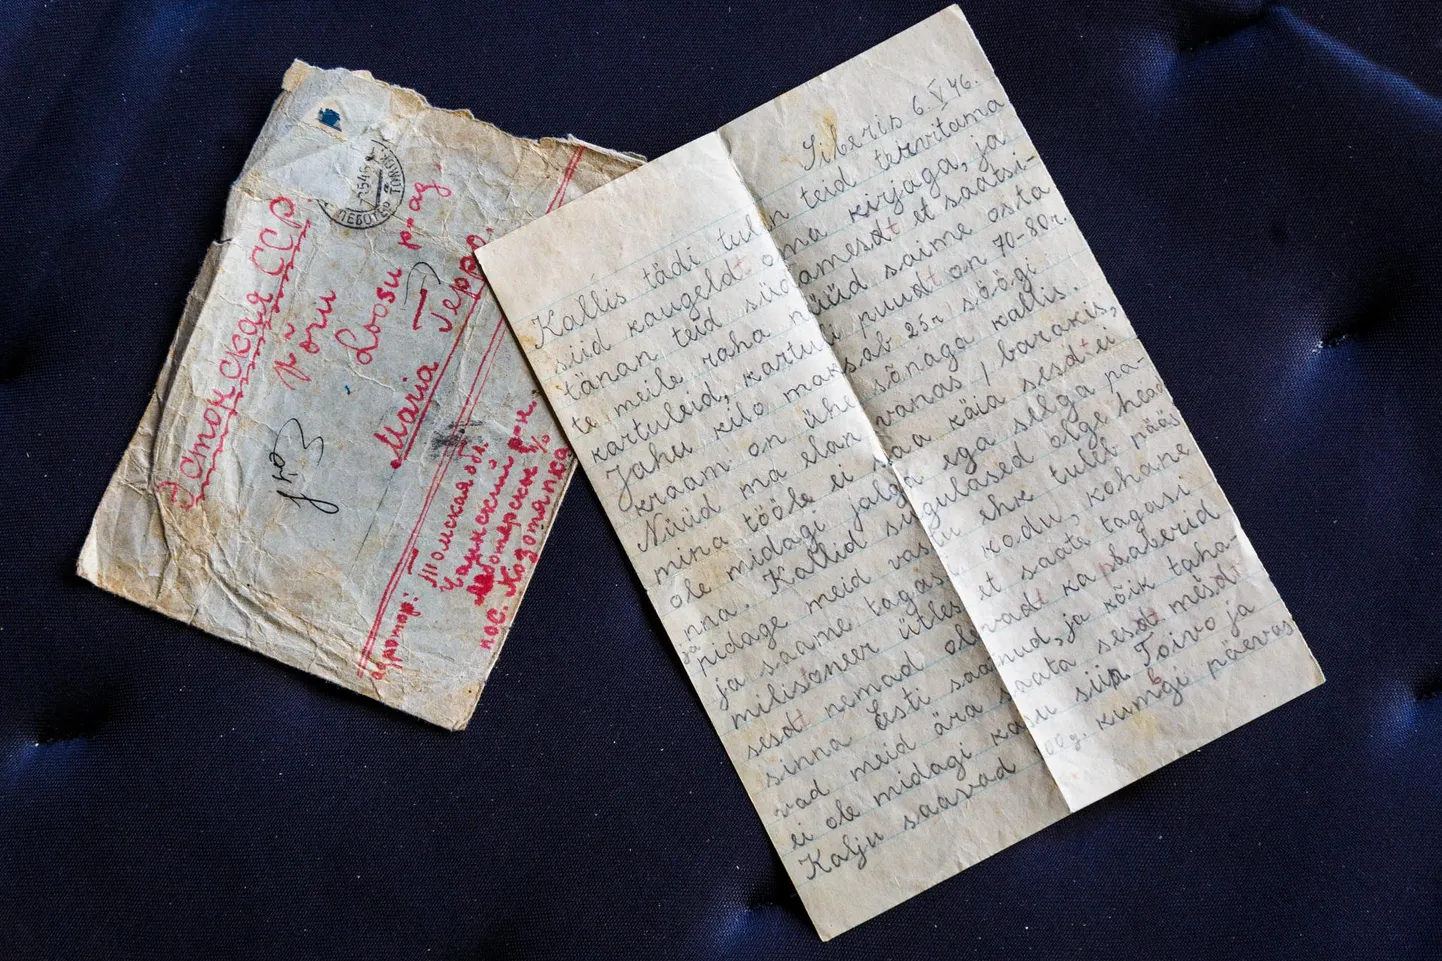 Эстонская ССР
Võru
Loosu
Maria Tepp.
Томская обл.
пос.
7.5.46
ТОМСК
Siberis 6.V 46.
Kallis tädi tulen teid tervitama
siid kaugeldt oma kirjaga, ja
tänan teid südamesdt et saatsi-
te meile raha nüüd saime osta
kartuleid, kartuli puudt on 70-80r.
Jahu kilo maksab 25r söögi
kraam on ühe sõnaga kallis.
Nüüd ma elan vanas barakis,
mina tööle ei saa käia sesdt ei
ole midagi jalga ega selga pa-
nna. Kallid sugulased olge head
ja pidage meid vastu ehk tuleb pääs
ja saame tagasi kodu, kohane
milisöneer ütles et saata tagasi
sesdt nemad olevadt ka paberid
sinna Eesti saatnud, ja kõik taha-
vad meid ära saata sesdt mesdt
ei ole midagi kasu siin Toivo ja
Kalju saavad kumgi päevas